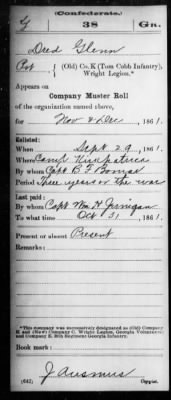 (Confederate.)
G 38 Ga.
Dred Glenn
Pvt { (Old) Co. K (Tom Cobb Infantry), Wright Legion.*
Appears on
Company Muster Roll
of the organization named above,
for Nov & Dec, 1861.
Enlisted:
When Sept 29, 1861.
Where Camp Kirkpatrick
By whom Capt C. F. Bomar
Period Three years or the war
Last paid:
By whom Capt Wm H Jernigan
To what time Oct 31, 1861.
Present or absent Present
Remarks:
*This company was successively designated as (Old) Company
K and (New) Company C, Wright Legion, Georgia Volunteers
and Company E, 38th Regiment Georgia Infantry.
Book mark:
(642) J Ausmus
Copyist.